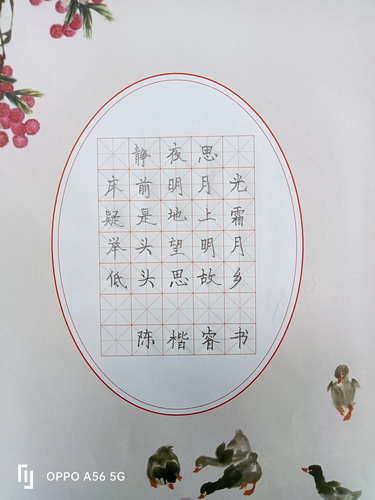 静夜思
床前明月光
疑是地上霜
举头望明月
低头思故乡
陈楷睿书
OPPO A56 5G